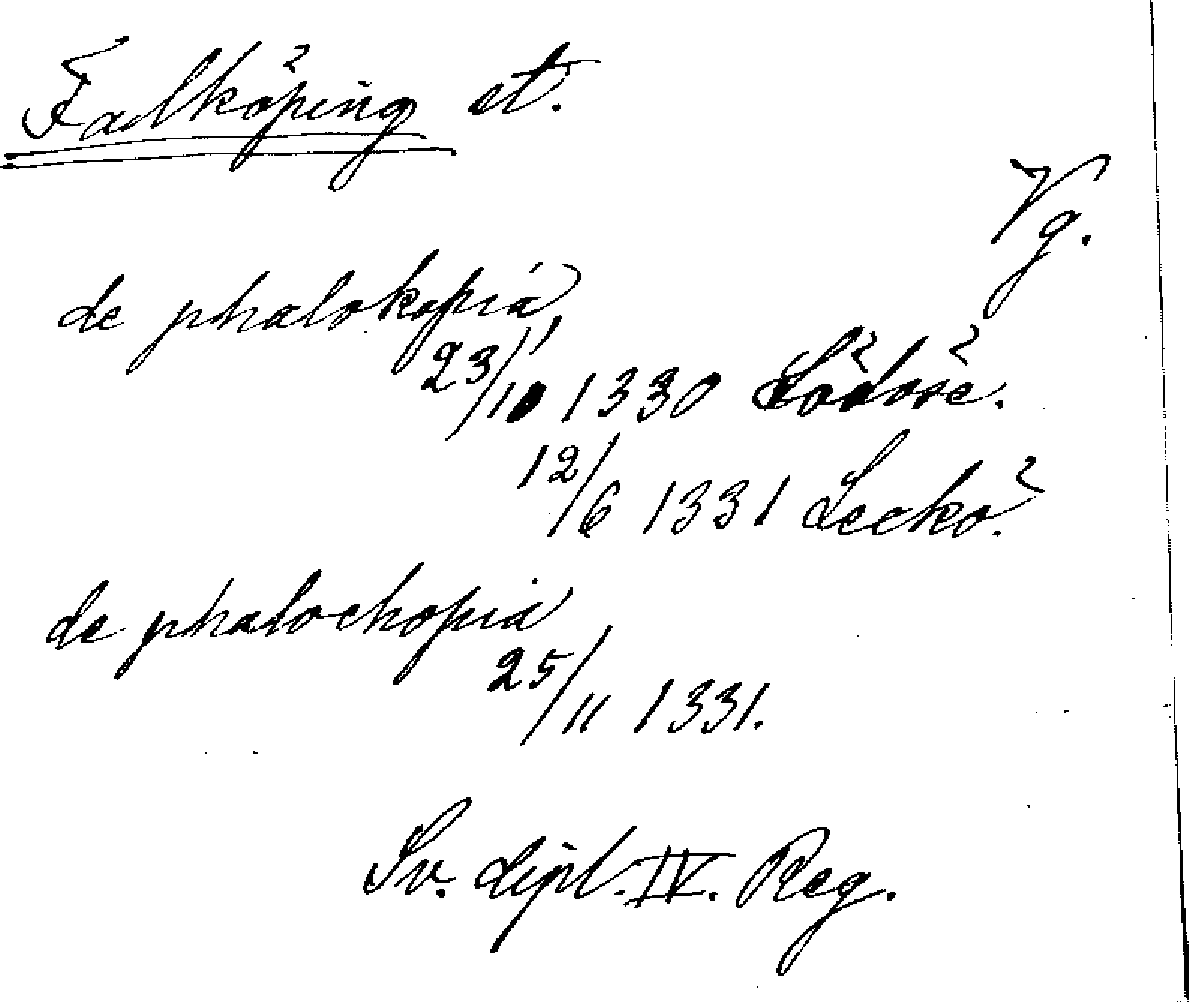 Falköping st.
Vg.
de phalokøpia
23/10 1330 Lödöse.
12/6 1331 Leckö.
de phalochopia
25/11 1331.
Sv. dipl. IV. Reg.